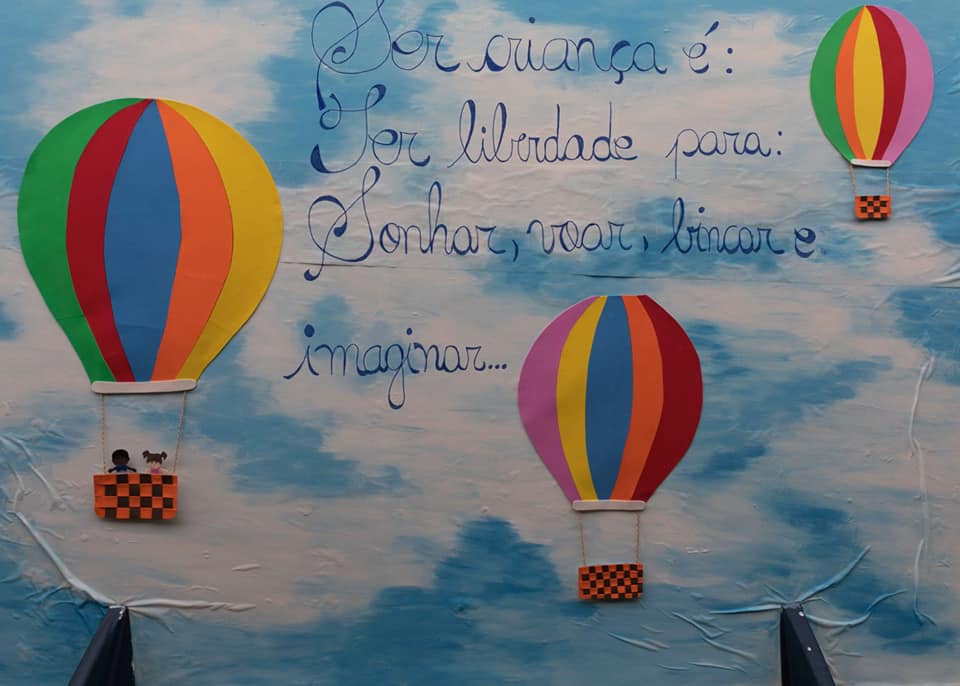 Ser criança é:
Ter liberdade para:
Sonhar, voar, brincar e
imaginar...